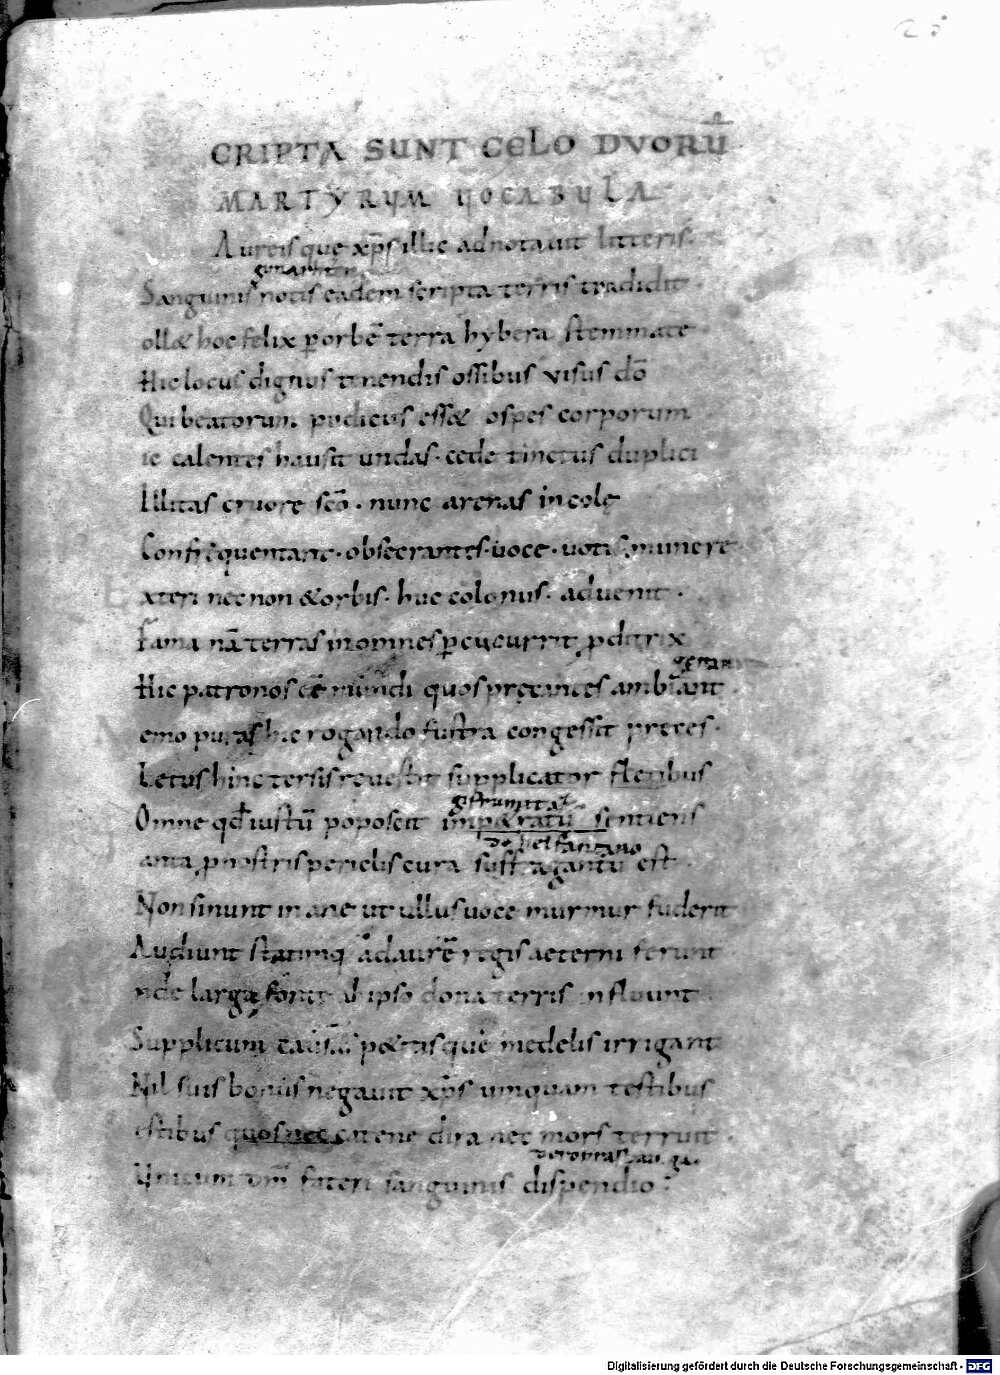 25
CRIPTA SUNT CELO DVORŪ
MARTYRUM VOCABULA
Aureisque xp̄s illic adnotauit litteris.
Sanguinis notis eadem scripta terris tradidit.
ollet hoc felix ꝑ orbē terra hybera stemmate
Hic locus dignus tenendis ossibus visus dō
Qui beatorum pudicus esset ospes corporum
ic calentes hausit undas. cede tinctus duplici
Illitas cruore scō. nunc arenas incolę
Confrequentant. obsecrantes. uoce. uotis munere
xteri nec non & orbis. huc colonus. aduenit.
Fama nā terras in omnes ꝑcucurrit ꝓditrix
Hic patronos eē mundi quos pręcantes ambiant.
emo puras hic rogando fustra congessit preces.
Letus hinc tersis reuertit supplicator fletibus
Omne qđ iustū poposcit impetratū sentiens
anta ꝓ nostris periclis cura suffragantū est.
Non sinunt inane ut ullus uoce murmur fuderit
Audiunt statimq. ad aurē regis aeterni ferunt
nde larga fonte ab ipso dona terris influunt
Supplicum causas petitisque medelis irrigant
Nil suis bonus negauit xp̄s umquam testibus
estibus quos nec catene dira nec mors terruit.
Unicum dm̄ fateri sanguinis dispendio:
Digitalisierung gefördert durch die Deutsche Forschungsgemeinschaft - DFG